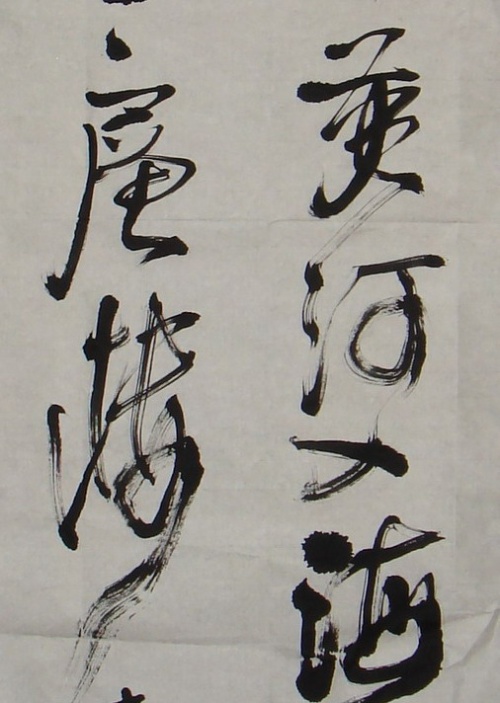 黄河入海
層樓